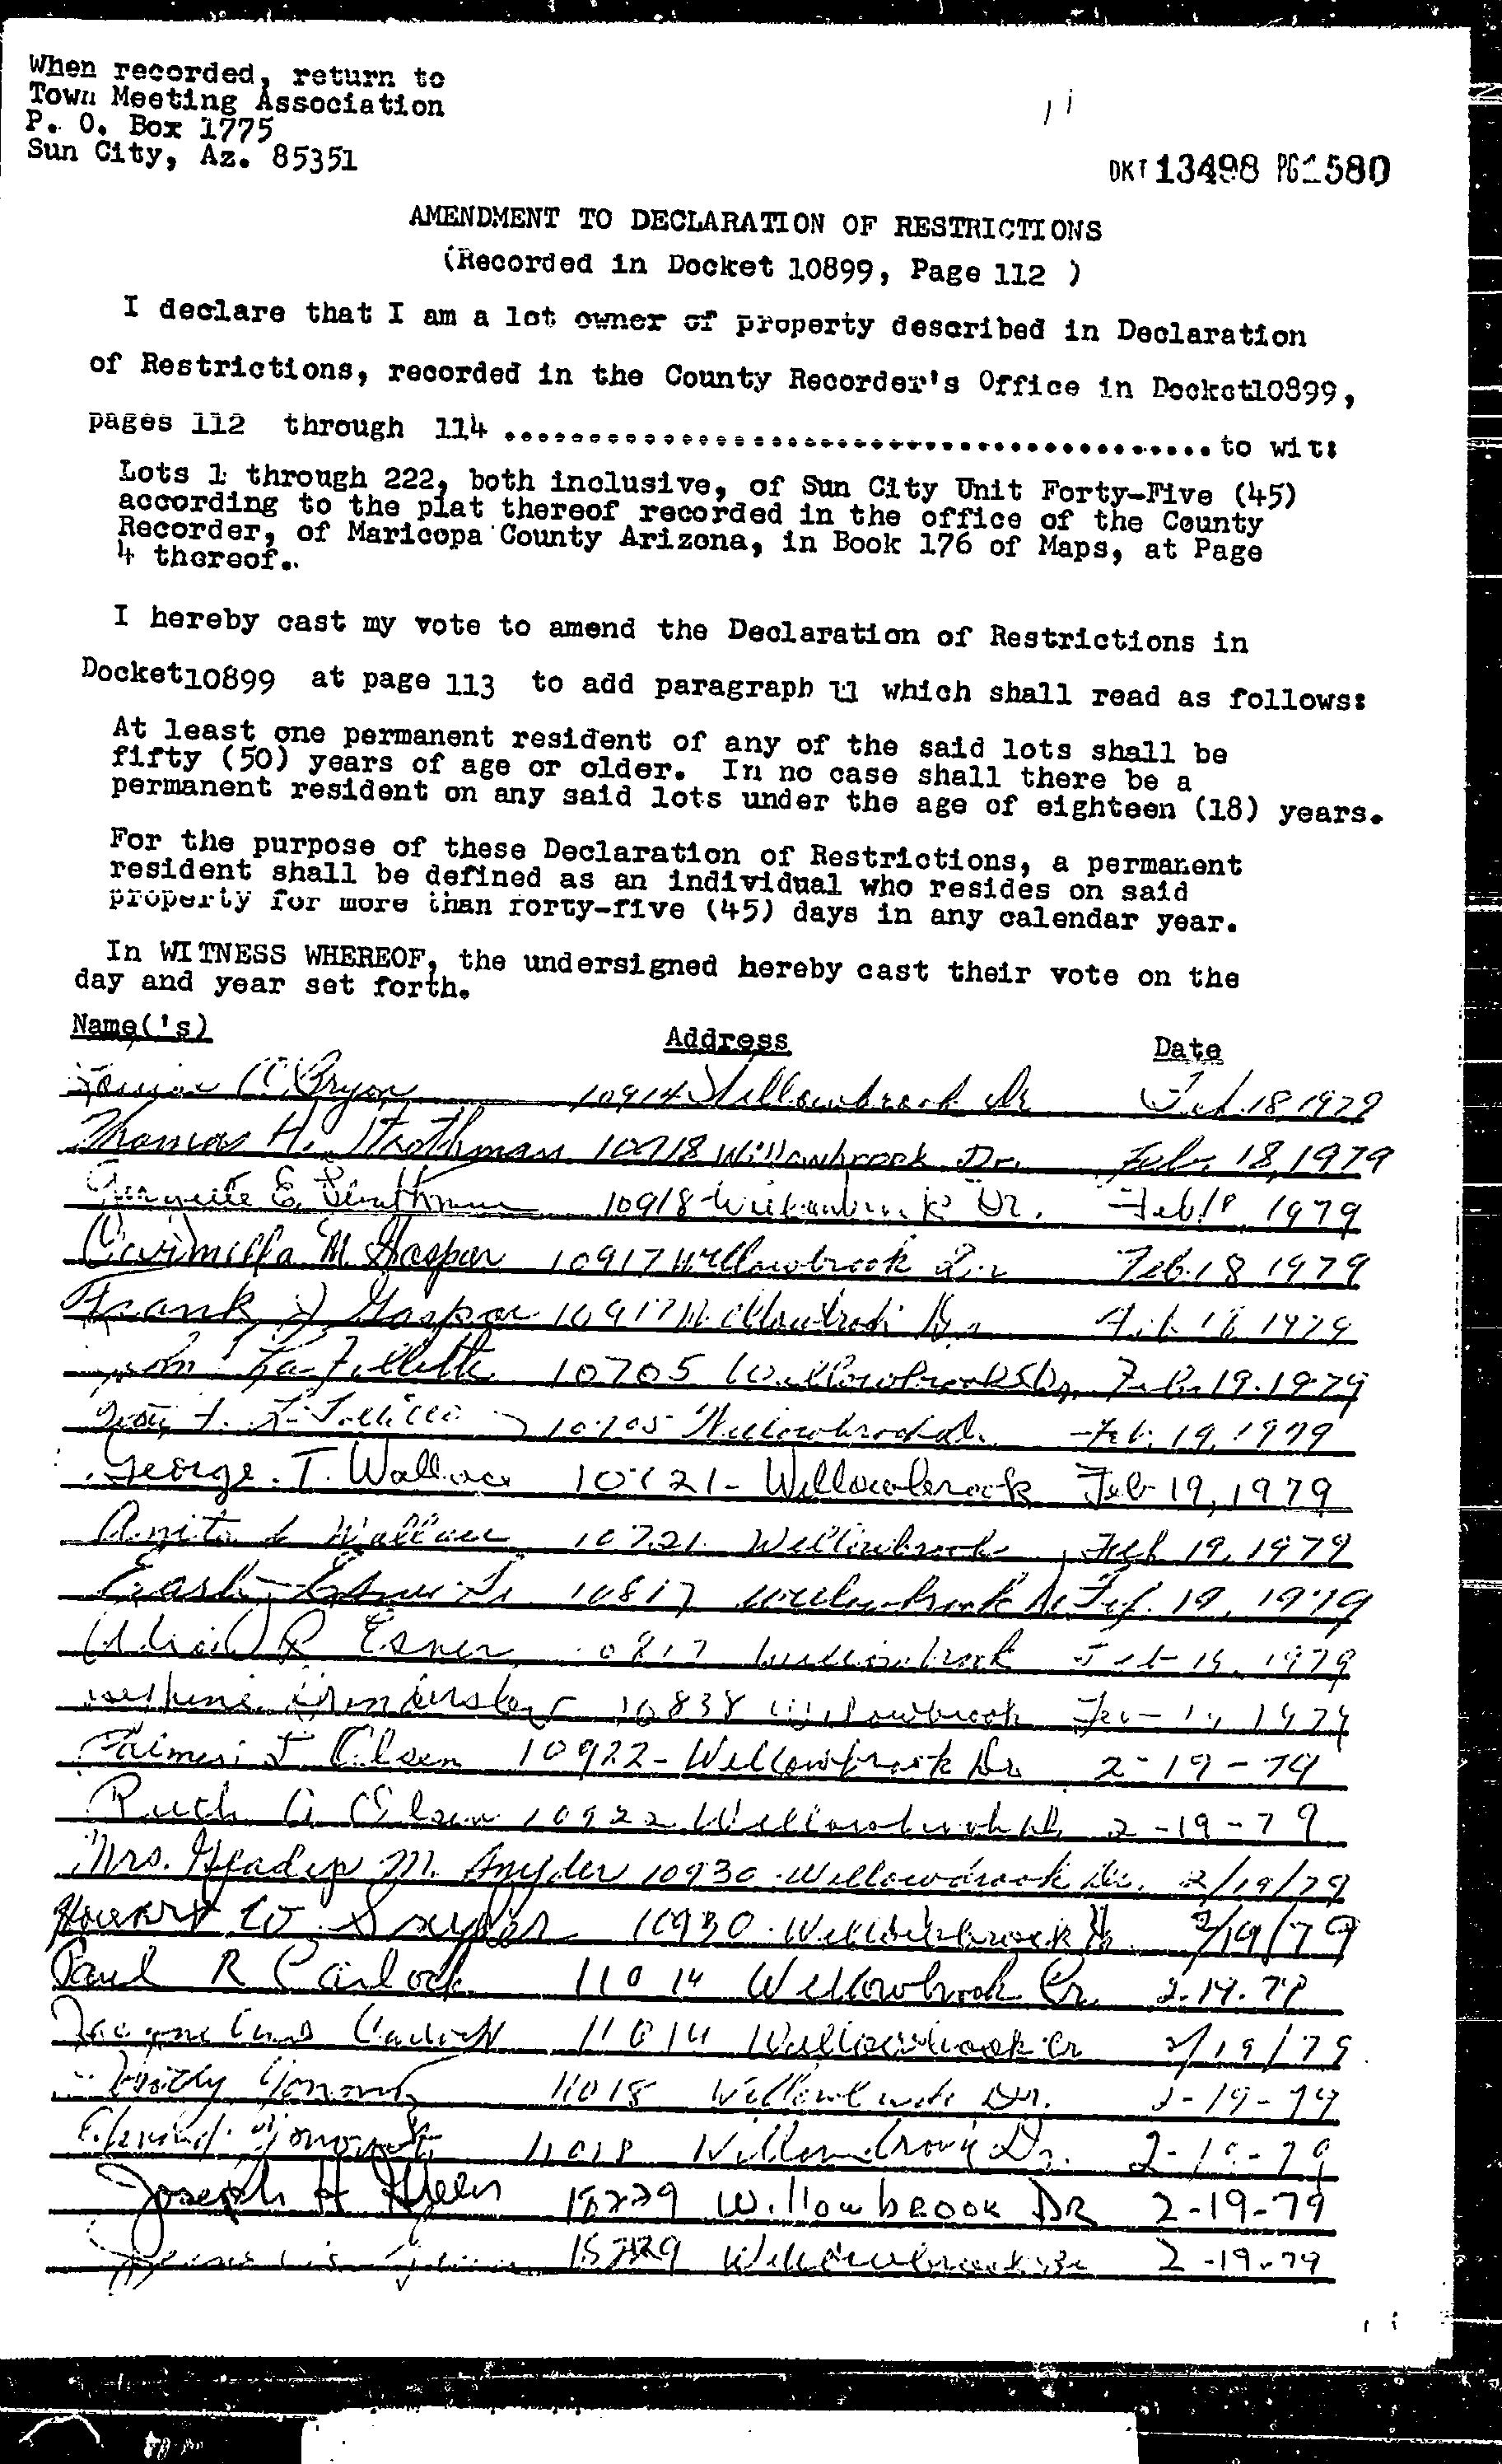 When recorded, return to
Town Meeting Association
P. O. Box 1775
Sun City, Az. 85351
DKT 13498 PG 1580
AMENDMENT TO DECLARATION OF RESTRICTIONS
(Recorded in Docket 10899, Page 112 )
I declare that I am a lot owner of property described in Declaration
of Restrictions, recorded in the County Recorder's Office in Docket10899,
pages 112 through 114 .................................................. to wit:
Lots 1 through 222, both inclusive, of Sun City Unit Forty-Five (45)
according to the plat thereof recorded in the office of the County
Recorder, of Maricopa County Arizona, in Book 176 of Maps, at Page
4 thereof.
I hereby cast my vote to amend the Declaration of Restrictions in
Docket10899 at page 113 to add paragraph 11 which shall read as follows:
At least one permanent resident of any of the said lots shall be
fifty (50) years of age or older. In no case shall there be a
permanent resident on any said lots under the age of eighteen (18) years.
For the purpose of these Declaration of Restrictions, a permanent
resident shall be defined as an individual who resides on said
property for more than forty-five (45) days in any calendar year.
In WITNESS WHEREOF, the undersigned hereby cast their vote on the
day and year set forth.
Name('s) Address Date
10914 Willowbrook Dr Feb. 18 1979
Thomas H. Strothman 10918 Willowbrook Dr. Feb. 18, 1979
E. Strothman 10918 Willowbrook Dr. Feb 18, 1979
M. Gaspar 10917 Willowbrook Dr Feb. 18 1979
Frank J Gaspar 10917 Willowbrook Dr Feb. 18 1979
John LaFollette 10705 Willowbrook Dr. Feb. 19. 1979
10705 Willowbrook Dr. Feb. 19, 1979
George. T. Wallace 10721 - Willowbrook Feb 19, 1979
Anita Wallace 10721 Willowbrook Feb 19, 1979
10817 Willowbrook Dr Feb. 19, 1979
R Esner 10817 Willowbrook Feb 19, 1979
10838 Willowbrook Feb 1979
J Olsen 10922 - Willowbrook Dr 2-19-79
Ruth A Olsen 10922 Willowbrook Dr 2-19-79
Mrs. Gladys M. Snyder 10930 Willowbrook Dr. 2/19/79
Howard W. Snyder 10930 Willowbrook Dr 2/19/79
Paul R Carlock 11014 Willowbrook Cr. 2.19.79
Carlock 11014 Willowbrook Cr 2/19/79
11018 Willowbrook Dr. 2-19-79
11018 Willowbrook Dr. 2-19-79
Joseph H 15229 Willowbrook DR 2-19-79
Willowbrook 2-19-79